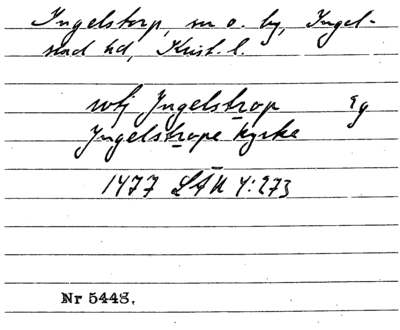 Ingelstorp, sn o. by, Ingel-
stad hd, Krist. l.
wtj Ingelstrop Eg
Ingelstrope kyrke
1477 LÄU 4:273
Nr 5448.